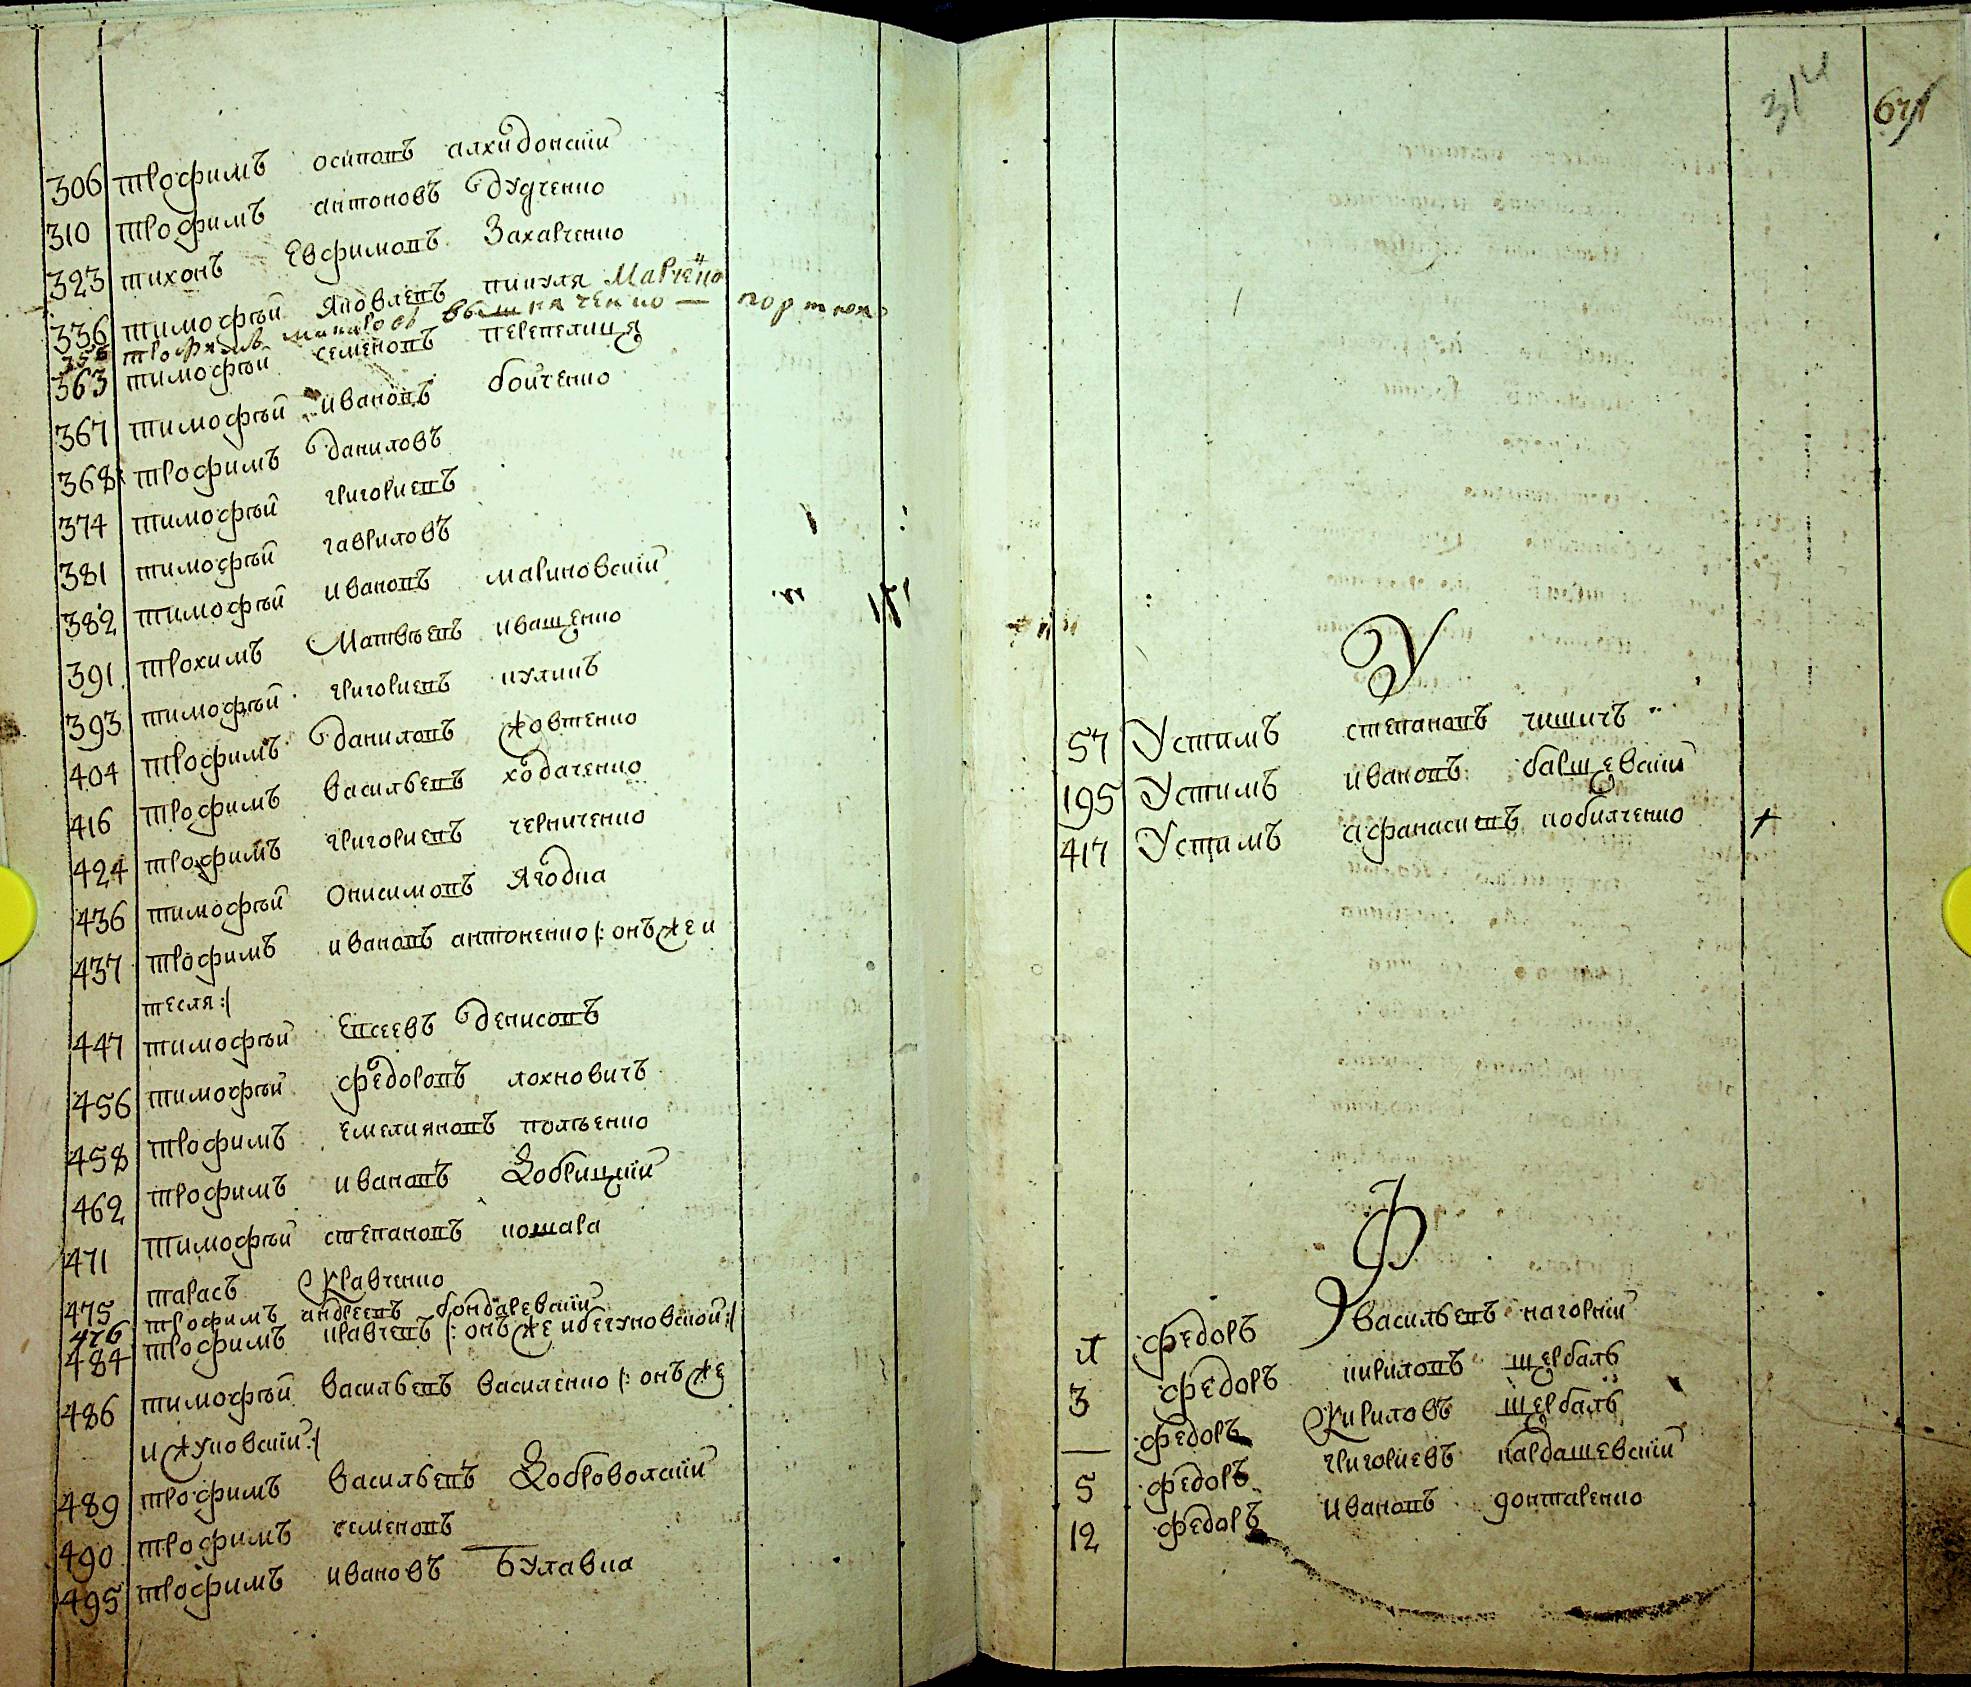 306 трофимъ осиповъ алхидонский
310 трофимъ антоновъ дудченко
323 тихонъ Евфимовъ Захарченко
336 тимофѣй Яковлевъ пикуля Марченко
трофимъ макаровъ — портной
363 тимофѣй семеновъ перепелиця
367 тимофѣй ивановъ бойченко
368 трофимъ даниловъ
374 тимофѣй григориевъ
381 тимофѣй гавриловъ
382 тимофѣй ивановъ малиновский
391 трохимъ Матвѣевъ иващенко
393 тимофѣй григориевъ куликъ
404 трофимъ даниловъ жовтенко
416 трофимъ васильевъ ходаченко
424 трофимъ григориевъ черниченко
436 тимофѣй Онисимовъ Ягодка
437 трофимъ ивановъ антоненко /: онъ же и
тесля :/
447 тимофѣй Евсеевъ денисовъ
456 тимофѣй федоровъ лохновичъ
458 трофимъ Емелияновъ полѣенко
462 трофимъ ивановъ Добрицкий
471 Тимофѣй степановъ кошара
475 тарасъ Кравченко
476 трофимъ андреевъ бондаревский
484 трофимъ кравчевъ /: онъ же и бегуновской :/
486 тимофѣй васильевъ василенко /: онъ же
и жуковский :/
489 трофимъ васильевъ Добровольский
490 трофимъ семеновъ
495 трофимъ ивановъ Булавка
314
671
У
57 Устимъ степановъ чишичъ
195 Устимъ ивановъ барщевский
417 Устимъ афанасиевъ кобилченко +
Ф
федоръ васильевъ нагорний
3 федоръ кириловъ щербаль
— федоръ Кириловъ щербаль
5 федоръ григориевъ кардашевский
12 федоръ ивановъ донтаренко